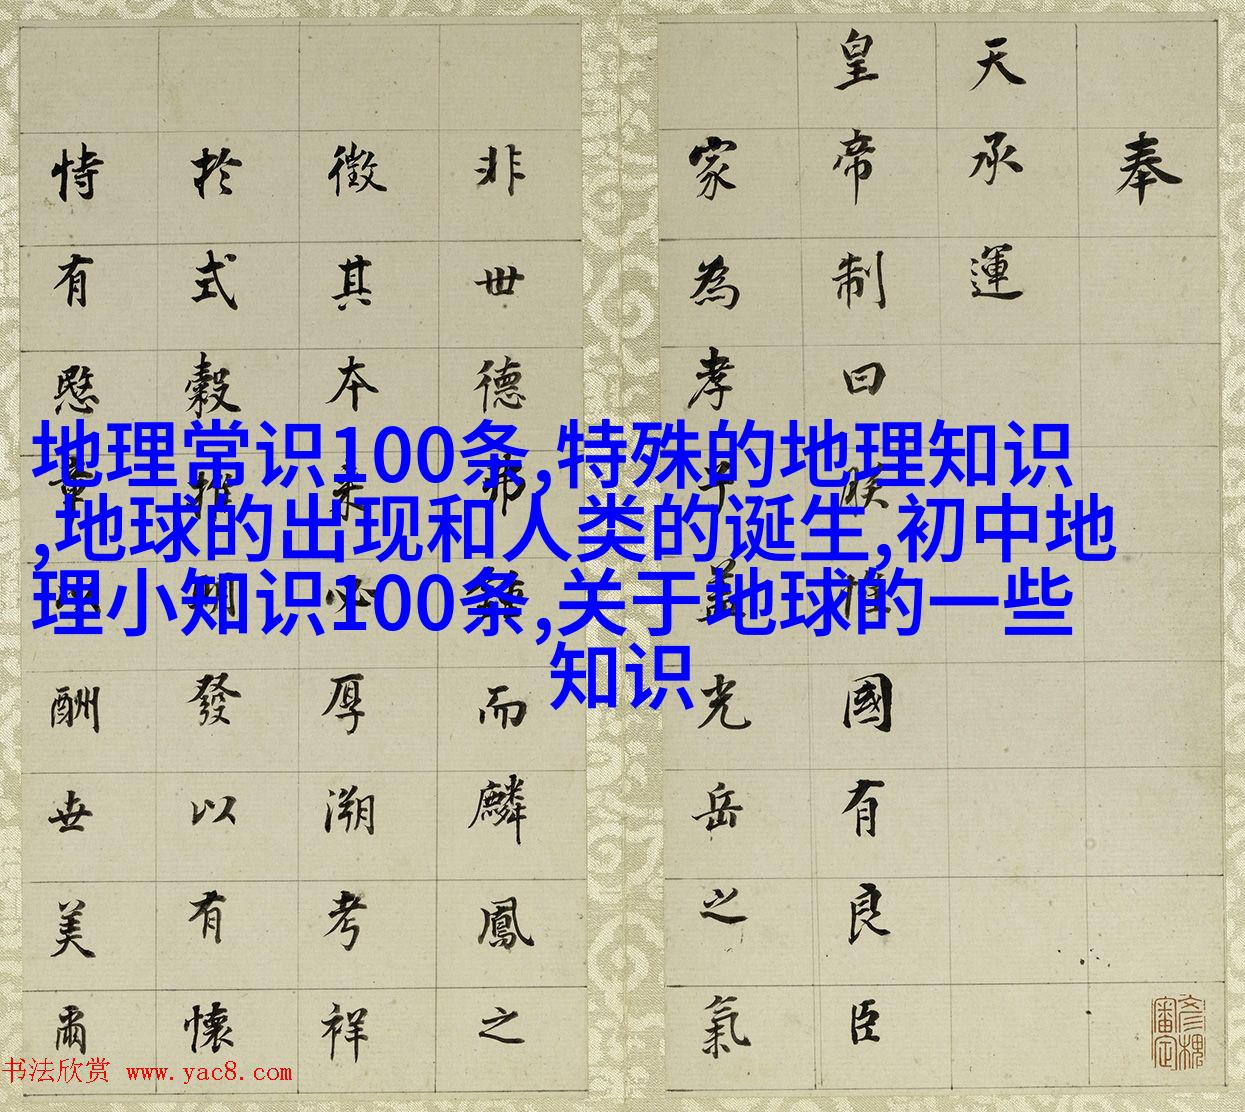 奉
天承運
皇帝制曰朕惟國有良臣
家為孝子蓋光岳之氣
非世德弗鍾而麟鳳之
徵其本必厚溯考祥
於式穀推明發以有懷
有愍章酬世美爾
彥槐審定
地理常识100条,特殊的地理知识
,地球的出现和人类的诞生,初中地
理小知识100条,关于地球的一些
知识
书法欣赏 www.yac8.com